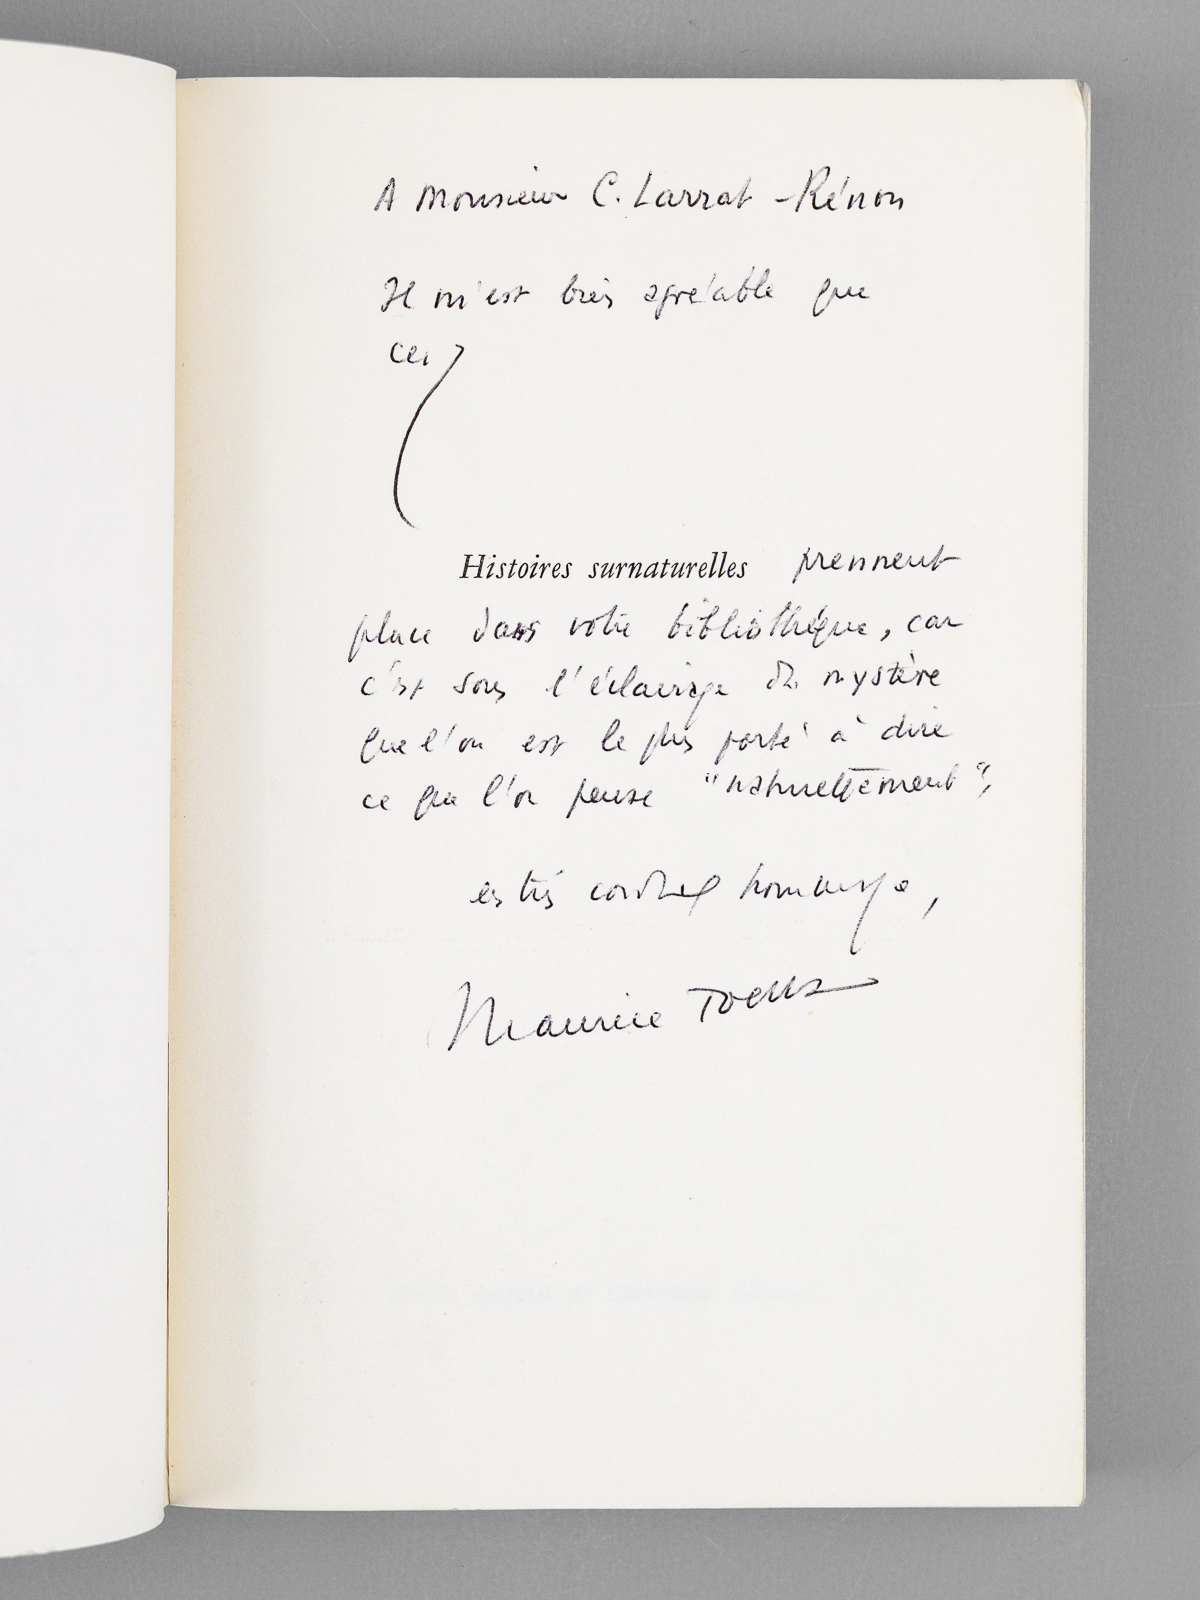 A Monsieur C. Larrat-Rénon
Il m'est très agréable que
ces
Histoires surnaturelles prennent
place dans votre bibliothèque, car
c'est sous l'éclairage du mystère
que l'on est le plus porté à dire
ce que l'on pense "naturellement",
en très cordial hommage,
Maurice Toesca